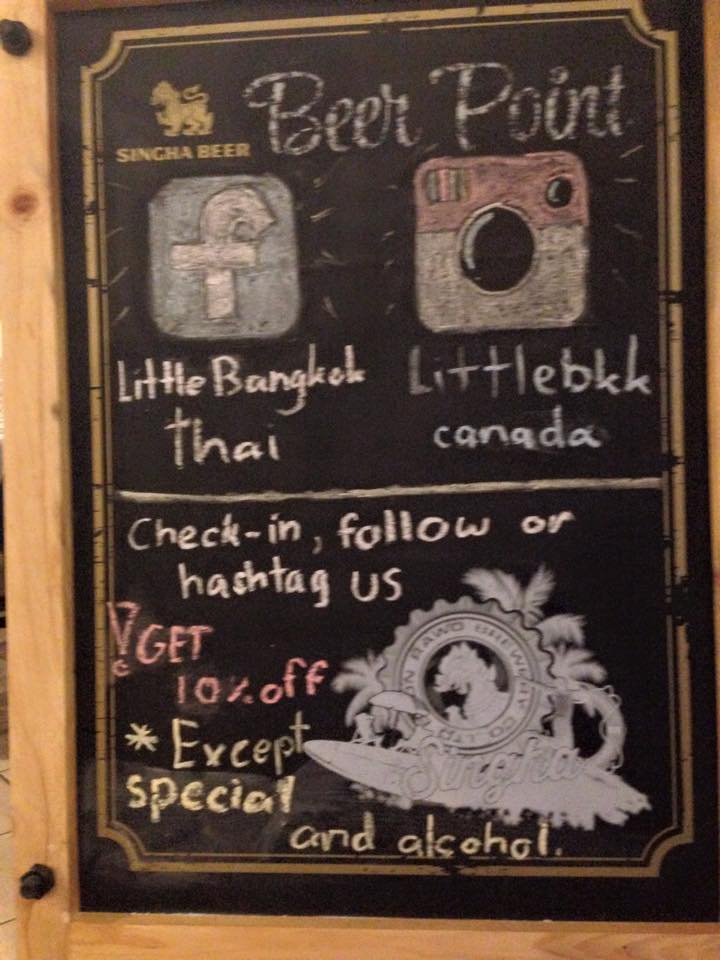 Beer Point
SINGHA BEER
f
Little Bangkok
thai
Littlebkk
canada
Check-in, follow or
hashtag us
! GET
10% off
* Except
special
and alcohol.
BOON RAWD BREWERY CO. LTD.
Singha